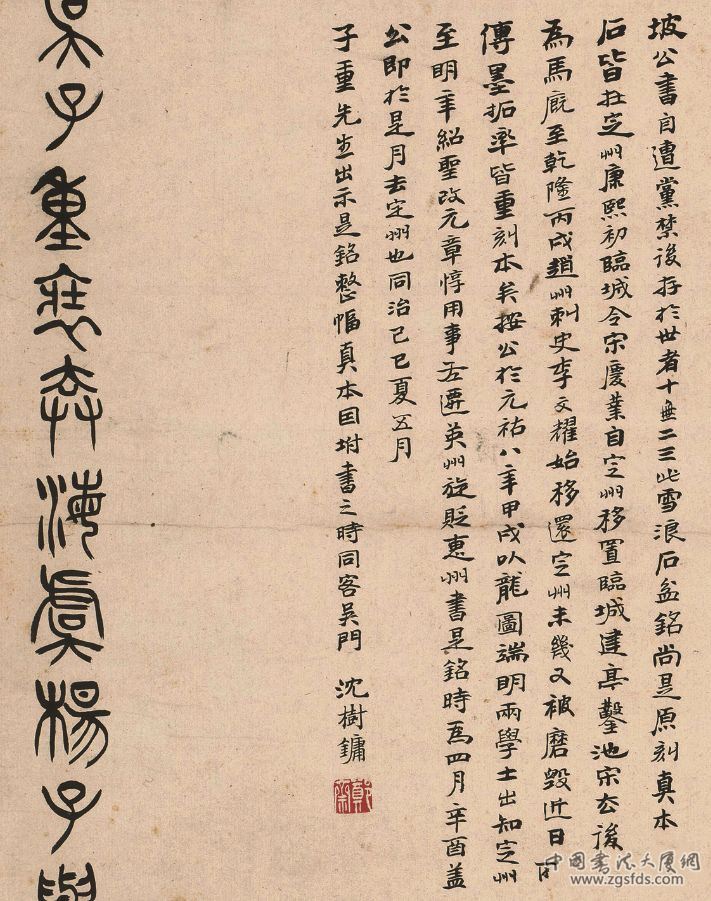 坡公書自遭黨禁後存於世者十無二三此雪浪石盆銘尚是原刻真本
石皆在定州康熙初臨城令宋廣業自定州移置臨城建亭鑿池宋去後
為馬廄至乾隆丙戌趙州刺史李文耀始移還定州未幾又被磨毀近日所
傳墨拓率皆重刻本矣按公於元祐八年甲戌以龍圖端明兩學士出知定州
至明年紹聖改元章惇用事左遷英州旋貶惠州書是銘時為四月辛酉蓋
公即於是月去定州也同治己巳夏五月
子重先生出示是銘整幅真本因坿書之時同客吳門 沈樹鏞
吳子重裝弆海虞楊子與
中国书法大厦網
www.zgsfds.com